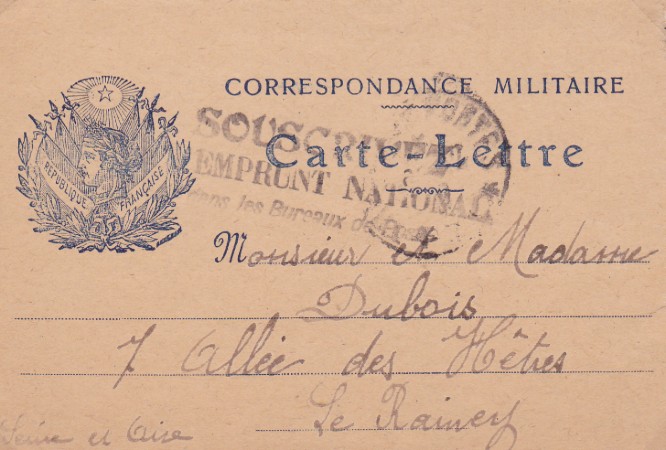 CORRESPONDANCE MILITAIRE
RÉPUBLIQUE FRANÇAISE
SOUSCRIVEZ
EMPRUNT NATIONAL
dans les Bureaux de Poste
Carte-Lettre
Monsieur et Madame
Dubois
7 Allée des Hêtres
Le Raincy
Seine et Oise